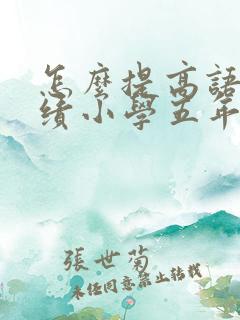 怎麼提高語
績小學五年
張世菊
未經同意禁止轉載